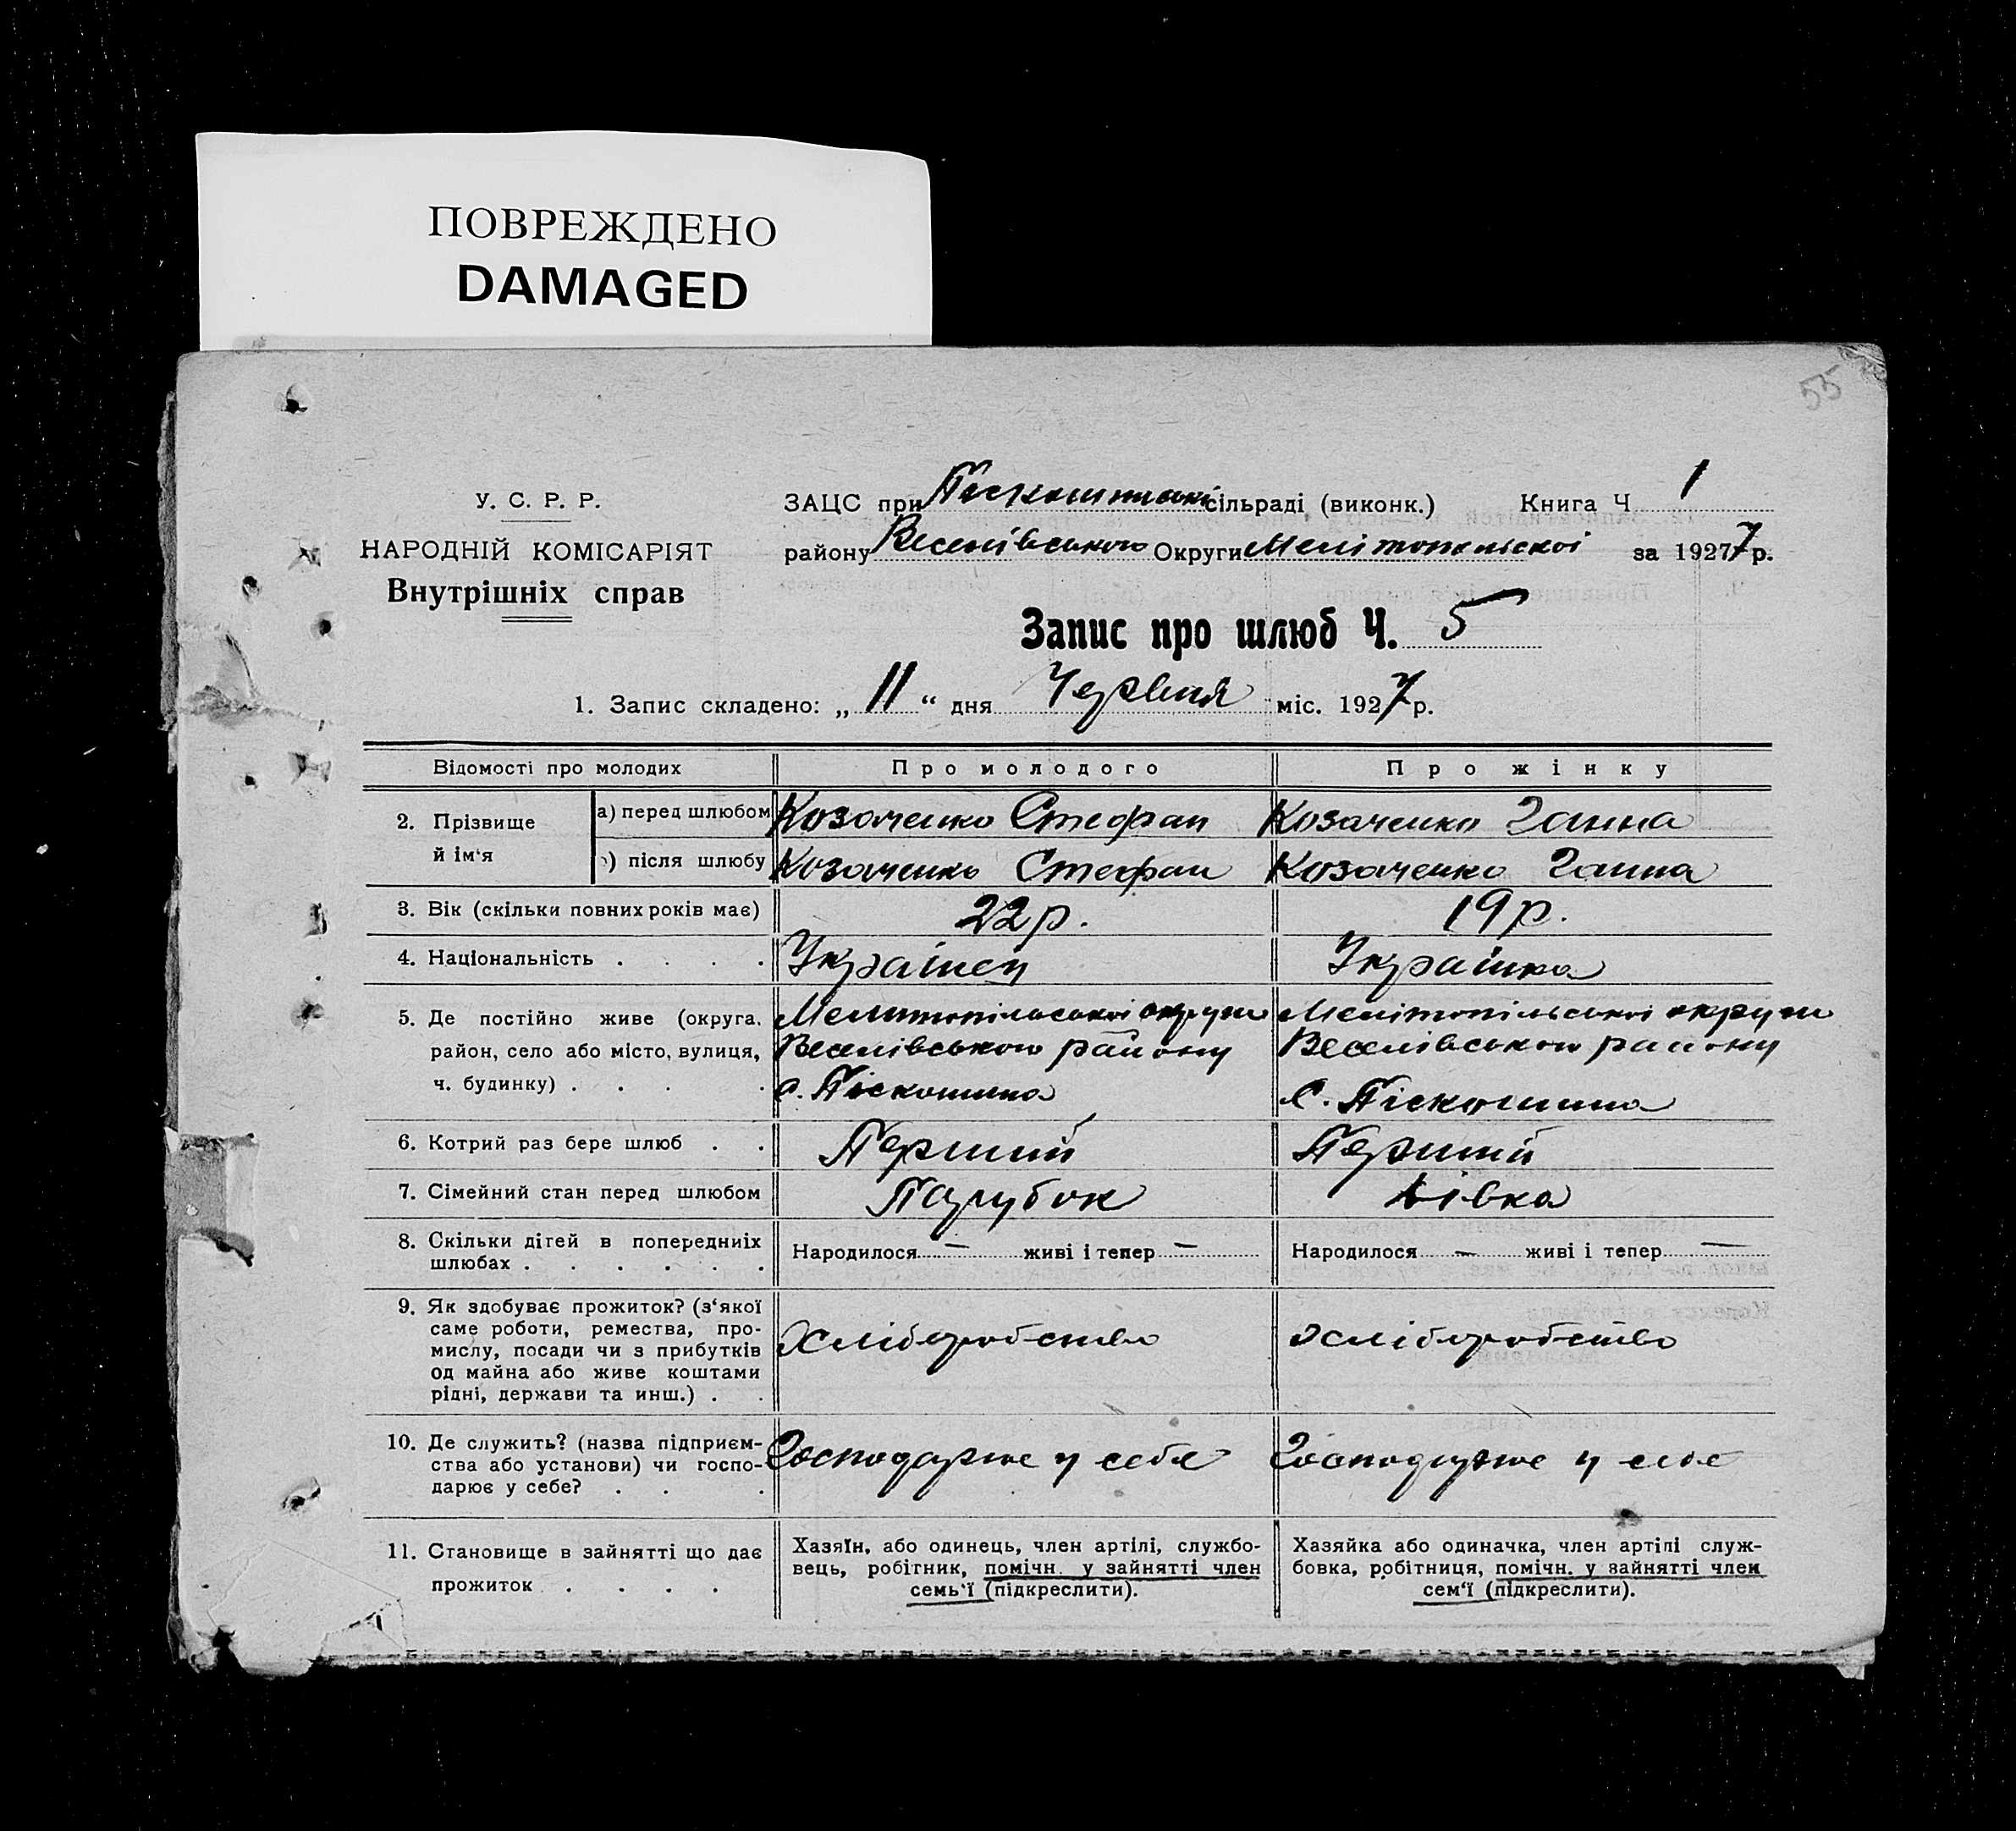 ПОВРЕЖДЕНО
DAMAGED
55
У. С. Р. Р.
НАРОДНІЙ КОМІСАРІЯТ
Внутрішніх справ
ЗАЦС при сільраді (виконк.) Книга Ч 1
району Веселівського Округи Мелітопольскоі за 1927 7 р.
Запис про шлюб Ч. 5
1. Запис складено: „ 11 “ дня Червня міс. 1927 р.
Відомості про молодих Про молодого Про жінку
2. Прізвище й ім‘я
а) перед шлюбом Козаченко Стефан Козаченко Ганна
) після шлюбу Козаченко Стефан Козаченко Ганна
3. Вік (скільки повних років має) 22 р. 19 р.
4. Національність . . . . Українец Українка
5. Де постійно живе (округа, Мелитопільськоі округи Мелітопільськоі округи
район, село або місто, вулиця, Веселівського району Веселівського району
ч. будинку) . . . . с. Піскошино с. Піскошино
6. Котрий раз бере шлюб . . Перший Перший
7. Сімейний стан перед шлюбом Парубок Дівка
8. Скільки дітей в попередниіх Народилося — живі і тепер — Народилося — живі і тепер —
шлюбах . . . . . .
9. Як здобуває прожиток? (з‘якої
саме роботи, ремества, про-
мислу, посади чи з прибутків Хліборобство хліборобство
од майна або живе коштами
рідні, держави та инш.) . .
10. Де служить? (назва підприєм- Господарює у себе Господарює у себе
ства або установи) чи госпо-
дарює у себе? . . .
11. Становище в зайнятті що дає
прожиток . . . .
Хазяїн, або одинець, член артілі, службо-
вець, робітник, помічн. у зайнятті член
семь‘ї (підкреслити).
Хазяйка або одиначка, член артілі служ-
бовка, робітниця, помічн. у зайнятті член
сем‘ї (підкреслити).